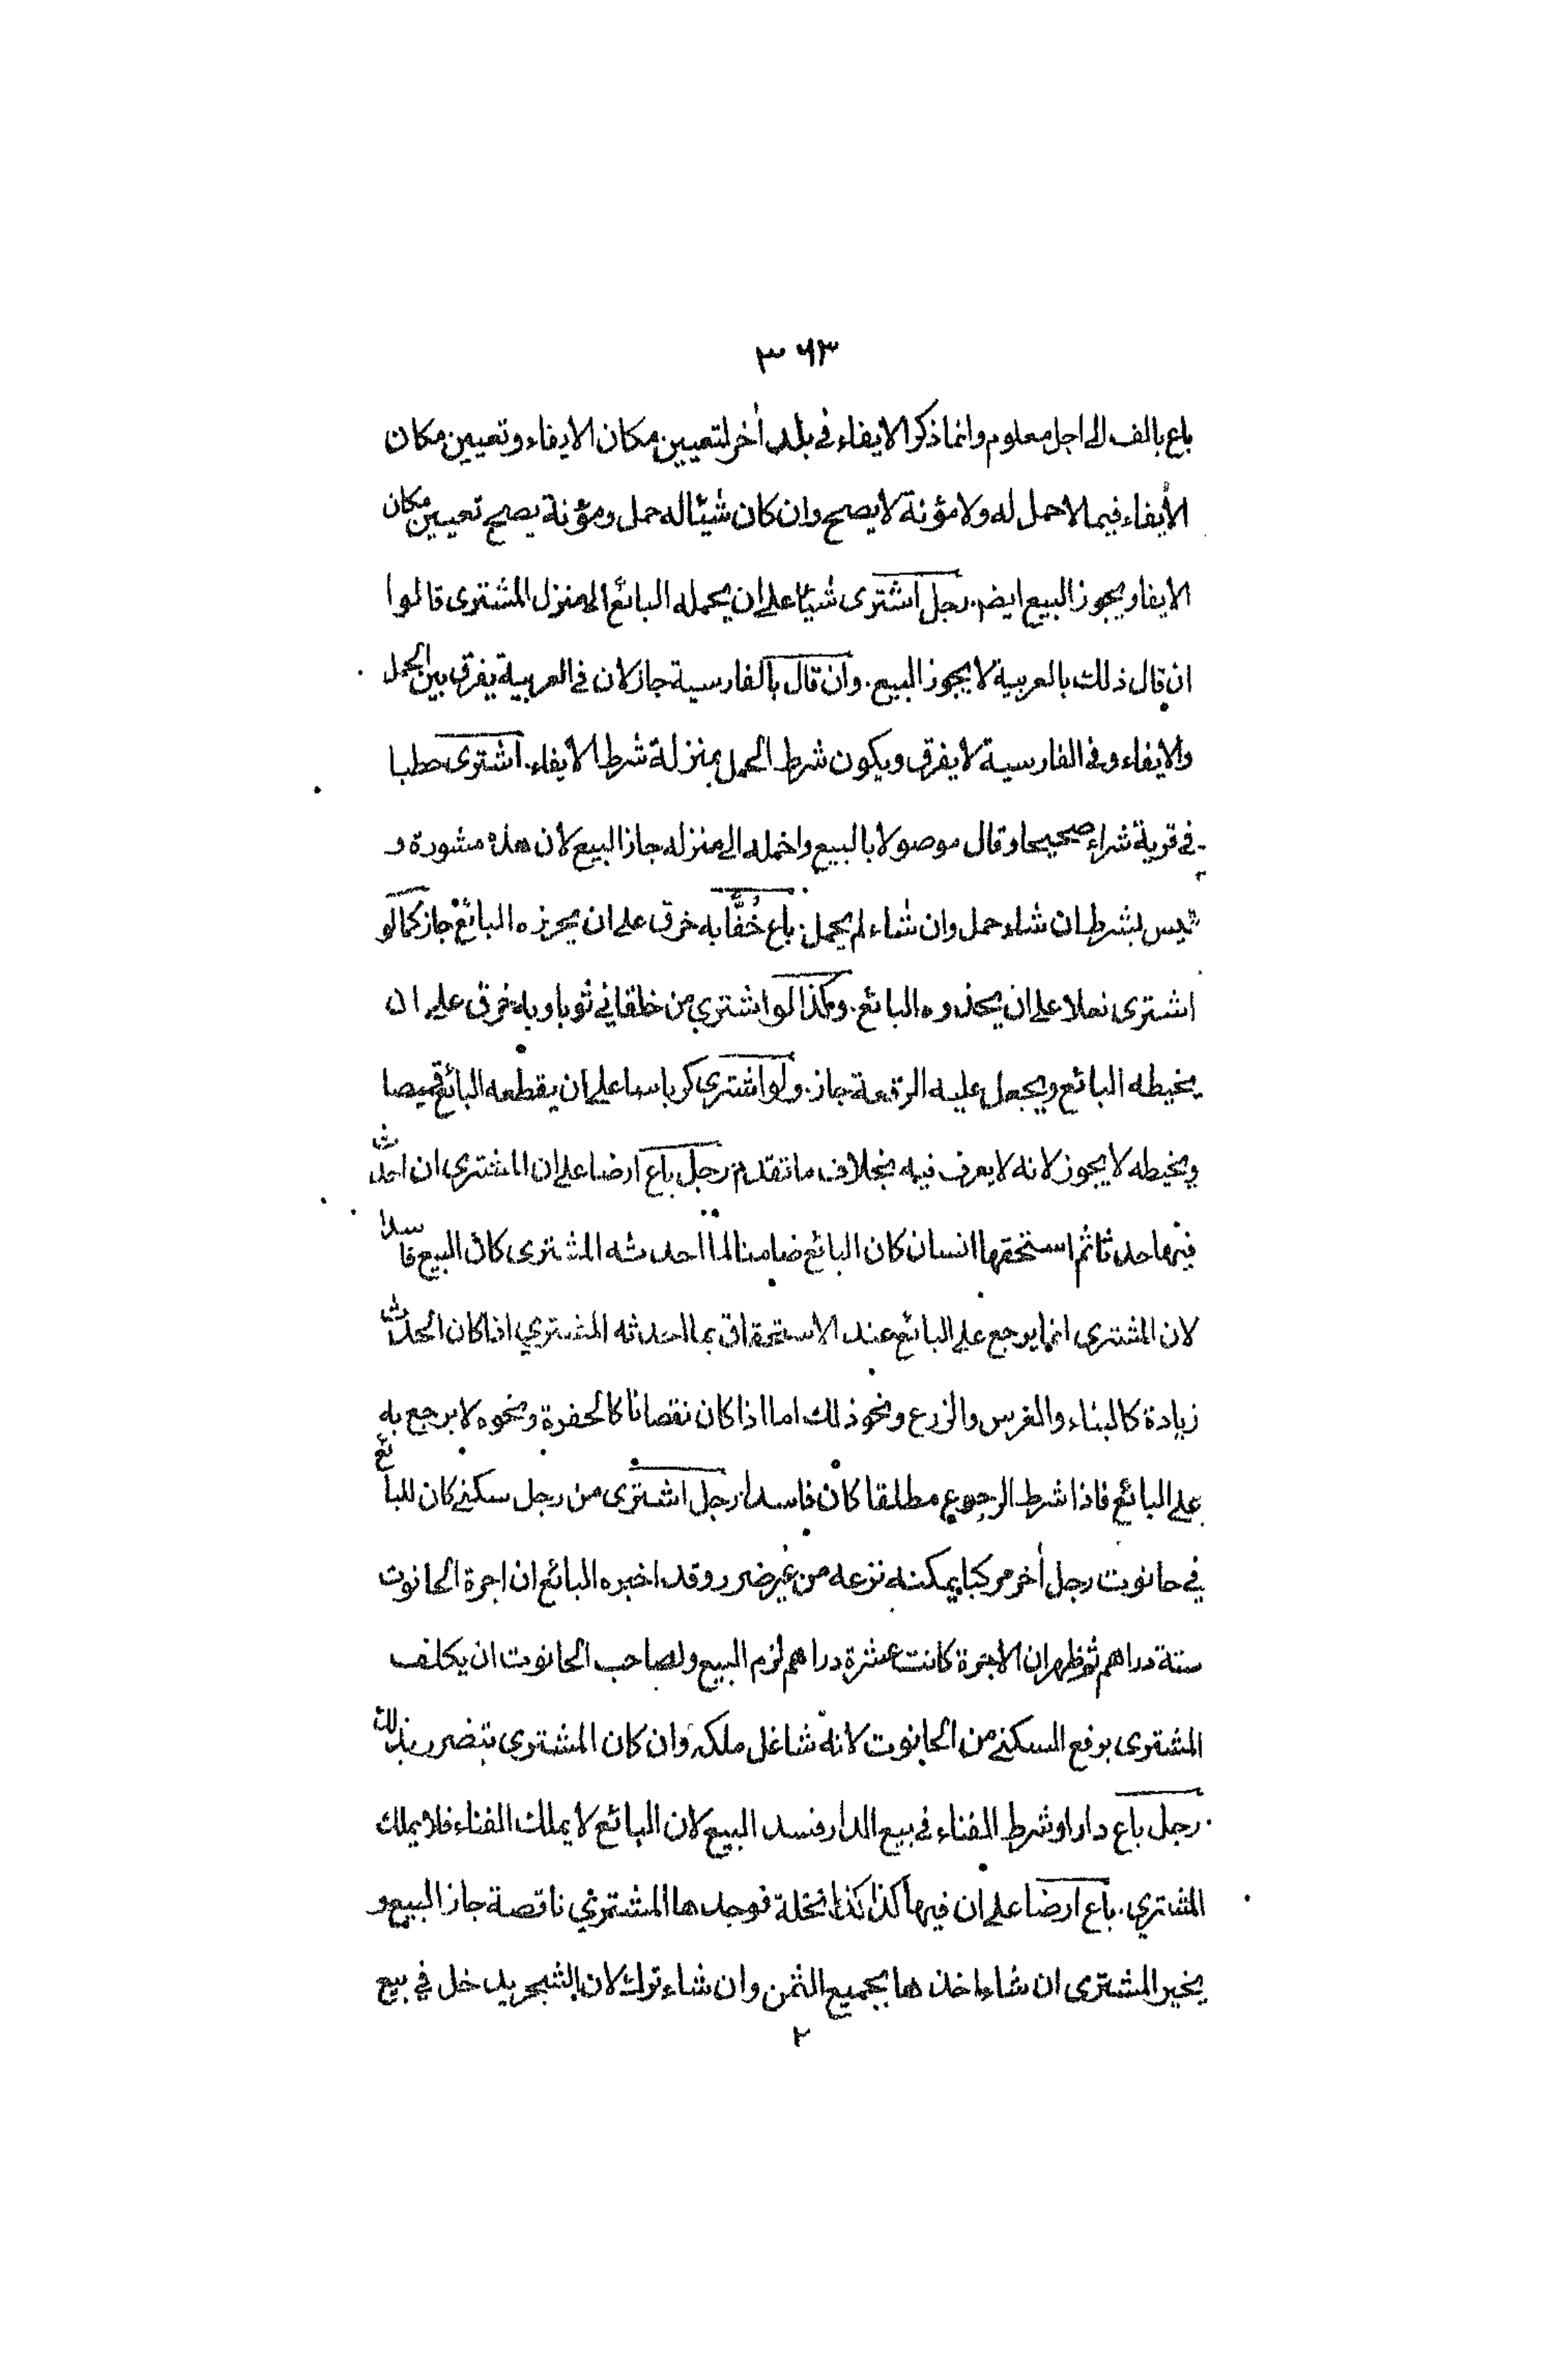 ٣٦٣
باع بالف الى اجل معلوم وانما ذكر الايفاء في بلد أخر لتعيين مكان الايفاء وتعيين مكان
الأيفاء فيما لا حمل له ولا مؤنة لا يصح وان كان شيئا له حمل ومؤنة يصح تعيين مكان
الايفا ويجوز البيع ايضم. رجل اشترى شيئا على ان يحمله البائع الى منزل المشترى قالوا
ان قال ذلك بالعربية لا يجوز البيع. وان قال بالفارسية جاز لان في العربية يفرق بين الحمل
والايفاء وفي الفارسية لا يفرق ويكون شرط الحمل بمنزلة شرط الايفاء. اشترى حطبا
في قرية شراء صحيحا وقال موصولا بالبيع واحمله الى منزله جاز البيع لان هذه مشورة و
ليس بشرط ان شاء حمل وان شاء لم يحمل. باع خُفًّا به خرق على ان يحرزه البائع جاز كما لو
اشترى نعلا على ان يحذوه البائع. وكذا لو اشتري من خلقاني ثوبا وبه خرق على ان
يخيطه البائع ويجعل عليه الرقعة جاز. ولو اشترى كرباسا على ان يقطعه البائع قميصا
ويخيطه لا يجوز لانه لا يعرف فيه بخلاف ما تقدم. رجل باع ارضا على ان المشترى ان احدث
فيها حدثا ثم استحقها انسان كان البائع ضامنا لما احدثه المشترى كان البيع فاسدا
لان المشترى انما يرجع على البائع عند الاستحقاق بما احدثه المشتري اذا كان الحدث
زيادة كالبناء والغرس والزرع ونحو ذلك اما اذا كان نقصانا كالحفرة ونحوه لا يرجع به
على البائع فاذا شرط الرجوع مطلقا كان فاسدا. رجل اشترى من رجل سكنى كان للبائع
في حانوت رجل أخر مركبا يمكنه نزعه من غير ضرر وقد اخبره البائع ان اجرة الحانوت
ستة دراهم ثم ظهر ان الاجرة كانت عشرة دراهم لزم البيع ولصاحب الحانوت ان يكلف
المشترى برفع السكنى من الحانوت لانه شاغل ملكه وان كان المشترى يتضرر بذلك
رجل باع دارا وشرط الفناء في بيع الدار فسد البيع لان البائع لا يملك الفناء فلا يملك
المشتري. باع ارضا على ان فيها كذا كذا نخلة فوجدها المشترى ناقصة جاز البيع و
يخير المشترى ان شاء اخذها بجميع الثمن وان شاء ترك لان الشجر يدخل في بيع
٢